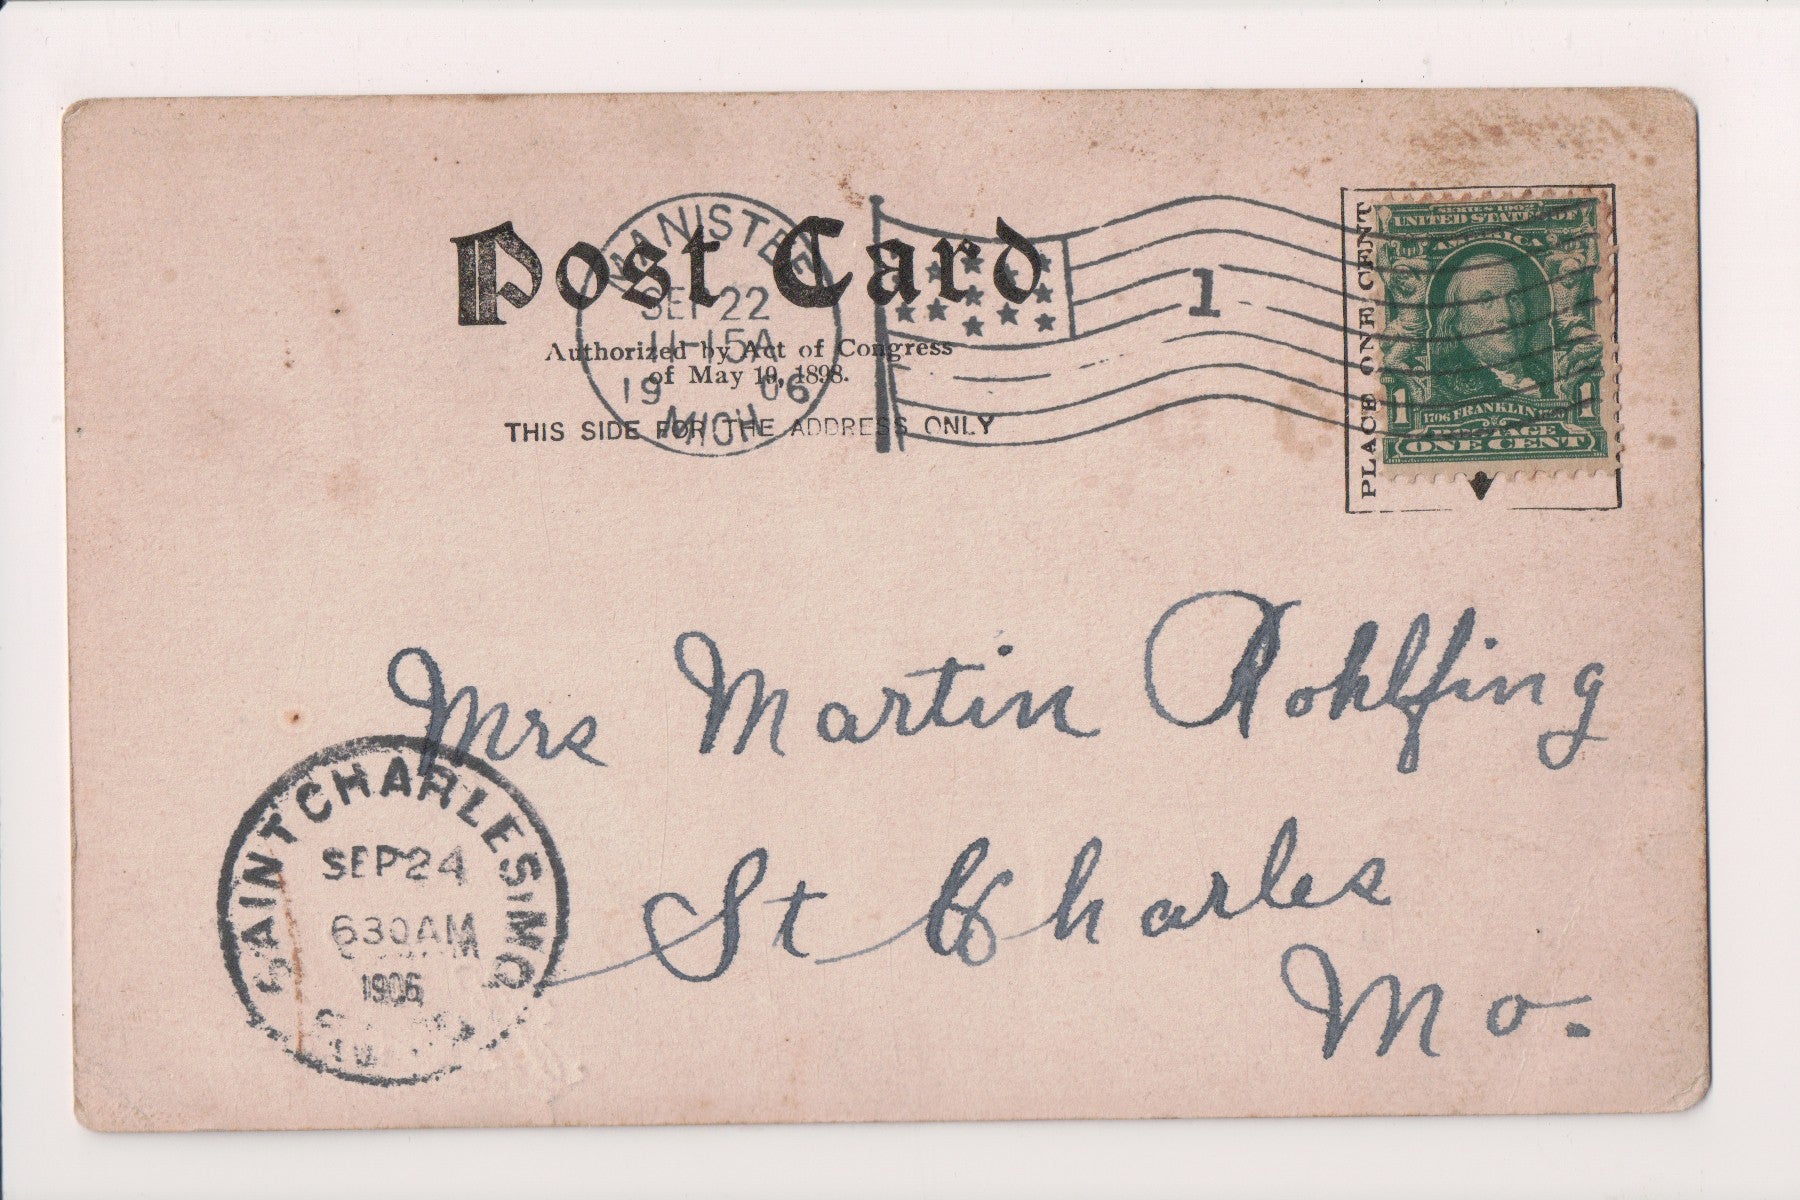 Post Card
Authorized by Act of Congress
of May 19, 1898.
THIS SIDE FOR THE ADDRESS ONLY
MANISTEE
SEP 22
11-15A
1906
MICH
1
PLACE ONE CENT
SERIES 1902
UNITED STATES OF
AMERICA
1 1706 FRANKLIN 1790 1
POSTAGE
ONE CENT
Mrs Martin Rohlfing
St Charles
Mo.
SAINT CHARLES, MO
SEP 24
630AM
1906